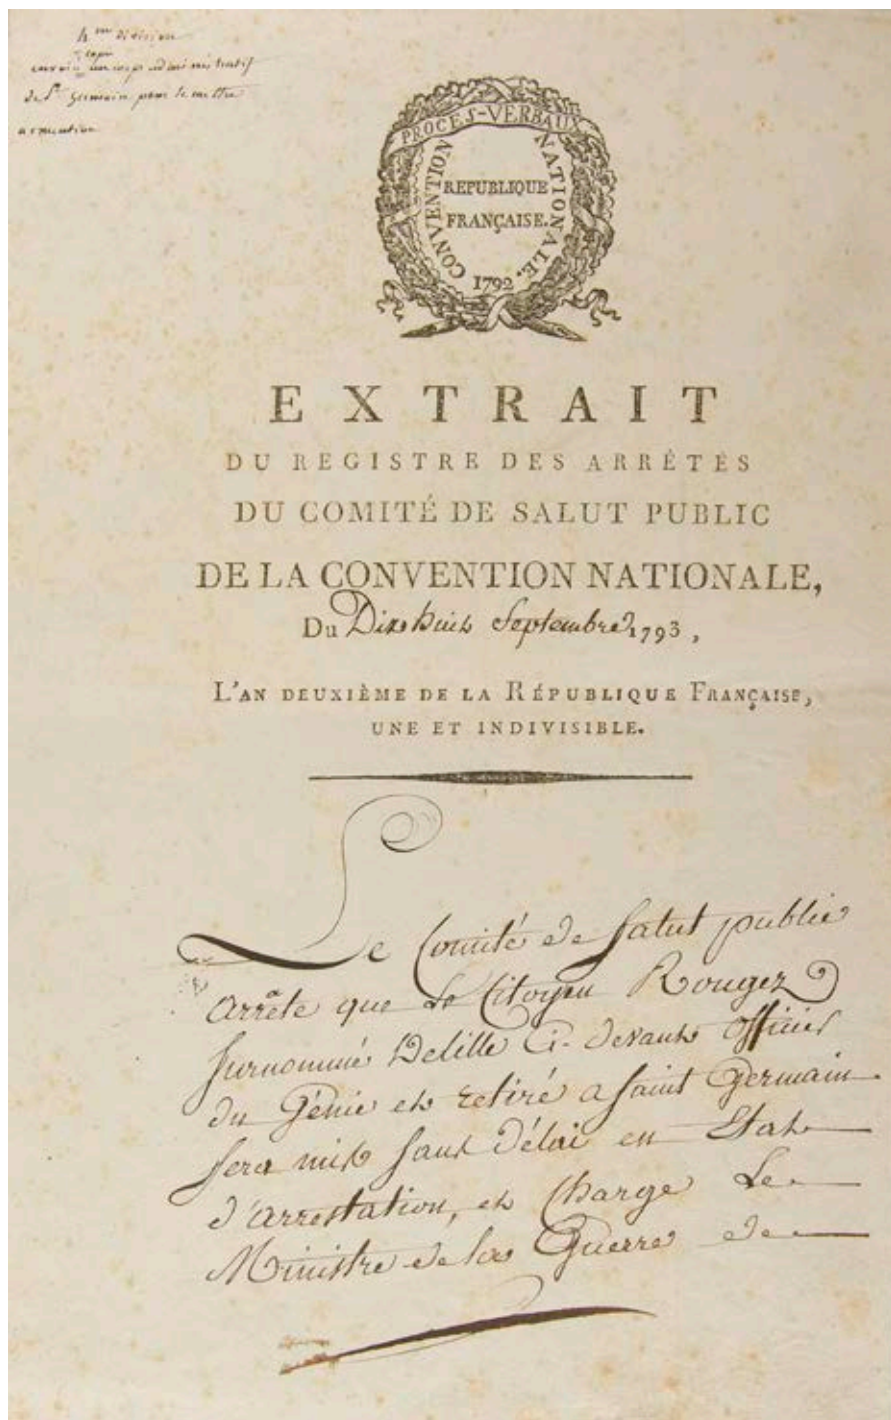 4me division
copie
envoié au corps administratif
de St Germain pour le mettre
a execution
PROCES-VERBAUX
CONVENTION NATIONALE.
REPUBLIQUE
FRANÇAISE.
1792
EXTRAIT
DU REGISTRE DES ARRÊTÉS
DU COMITÉ DE SALUT PUBLIC
DE LA CONVENTION NATIONALE,
Du Dix huit Septembre 1793,
L'AN DEUXIÈME DE LA RÉPUBLIQUE FRANÇAISE,
UNE ET INDIVISIBLE.
Le Comité de Salut public
arrête que Le Citoyen Rougez
surnommé Delille Ci-devant officier
du Génie et retiré a Saint Germain
sera mis sans délai en Etat
d'arrestation, et Charge Le
Ministre de la Guerre de